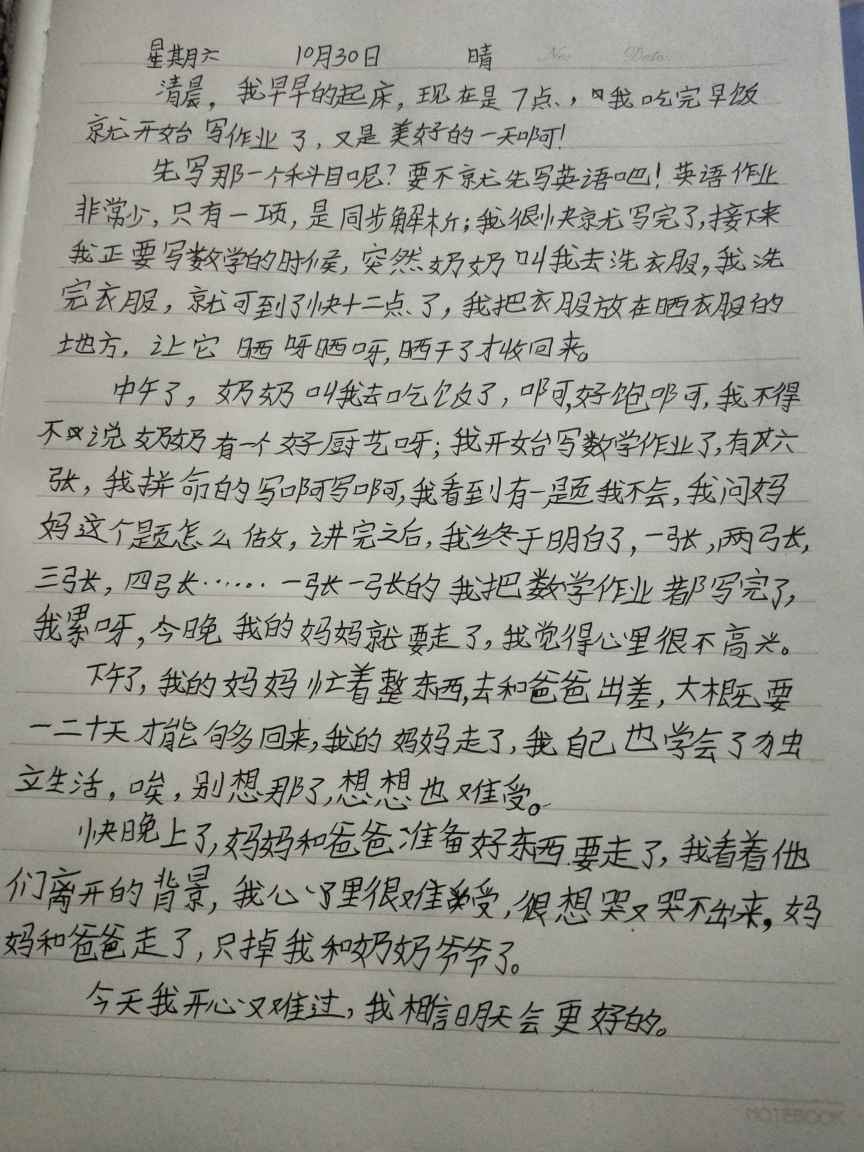 星期六 10月30日 晴 No: Date:
清晨，我早早的起床，现在是7点，我吃完早饭
就开始写作业了，又是美好的一天啊！
先写那一个科目呢？要不就先写英语吧！英语作业
非常少，只有一项，是同步解析；我很快就写完了，接下来
我正要写数学的时候，突然奶奶叫我去洗衣服，我洗
完衣服，就可到了快十二点了，我把衣服放在晒衣服的
地方，让它晒呀晒呀，晒干了才收回来。
中午了，奶奶叫我去吃饭了，啊，好饱啊，我不得
不说奶奶有一个好厨艺呀；我开始写数学作业了，有六
张，我拼命的写啊写啊，我看到有一题我不会，我问妈
妈这个题怎么做，讲完之后，我终于明白了，一张，两张，
三张，四张……一张一张的我把数学作业都写完了，
我累呀，今晚我的妈妈就要走了，我觉得心里很不高兴。
下午了，我的妈妈忙着整东西，去和爸爸出差，大概要
一二十天才能够回来，我的妈妈走了，我自己也学会了独
立生活，唉，别想那了，想想也难受。
快晚上了，妈妈和爸爸准备好东西要走了，我看着他
们离开的背景，我心里很难受，很想哭又哭不出来，妈
妈和爸爸走了，只掉我和奶奶爷爷了。
今天我开心又难过，我相信明天会更好的。
NOTEBOOK